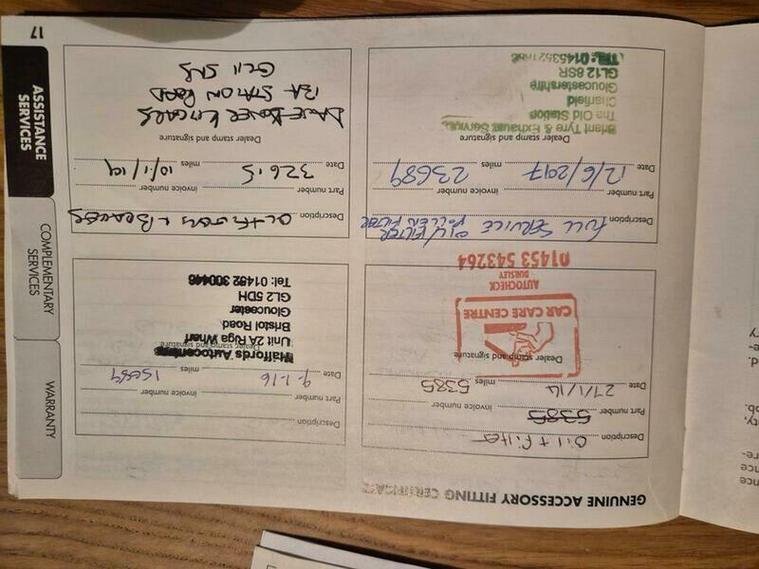 GENUINE ACCESSORY FITTING CERTIFICATE
Description Oil + filter
Part number 5385 invoice number
Date 27/1/14 miles 5385
Dealer stamp and signature
CAR CARE CENTRE
AUTOCHECK
DURSLEY
01453 543264
Description
Part number invoice number
Date 9-1-16 miles 15689
Dealer stamp and signature
Halfords Autocentres
Unit 2A Riga Wharf
Bristol Road
Gloucester
GL2 5DH
Tel: 01452 300446
Description FULL SERVICE OIL/FILTER
POLLEN FILTER
Part number invoice number
Date 12/6/2017 miles 23689
Dealer stamp and signature
Briant Tyre & Exhaust Services
The Old Station
Charfield
Gloucestershire
GL12 8SR
TEL: 01453521788
Description
Part number invoice number
Date 32615 miles 10/1/19
Dealer stamp and signature
STATION ROAD
GL11 5NS
WARRANTY
COMPLEMENTARY
SERVICES
ASSISTANCE
SERVICES
17